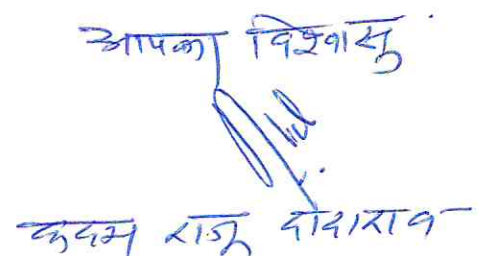 आपका विश्वासु
कदम राजू दादाराव